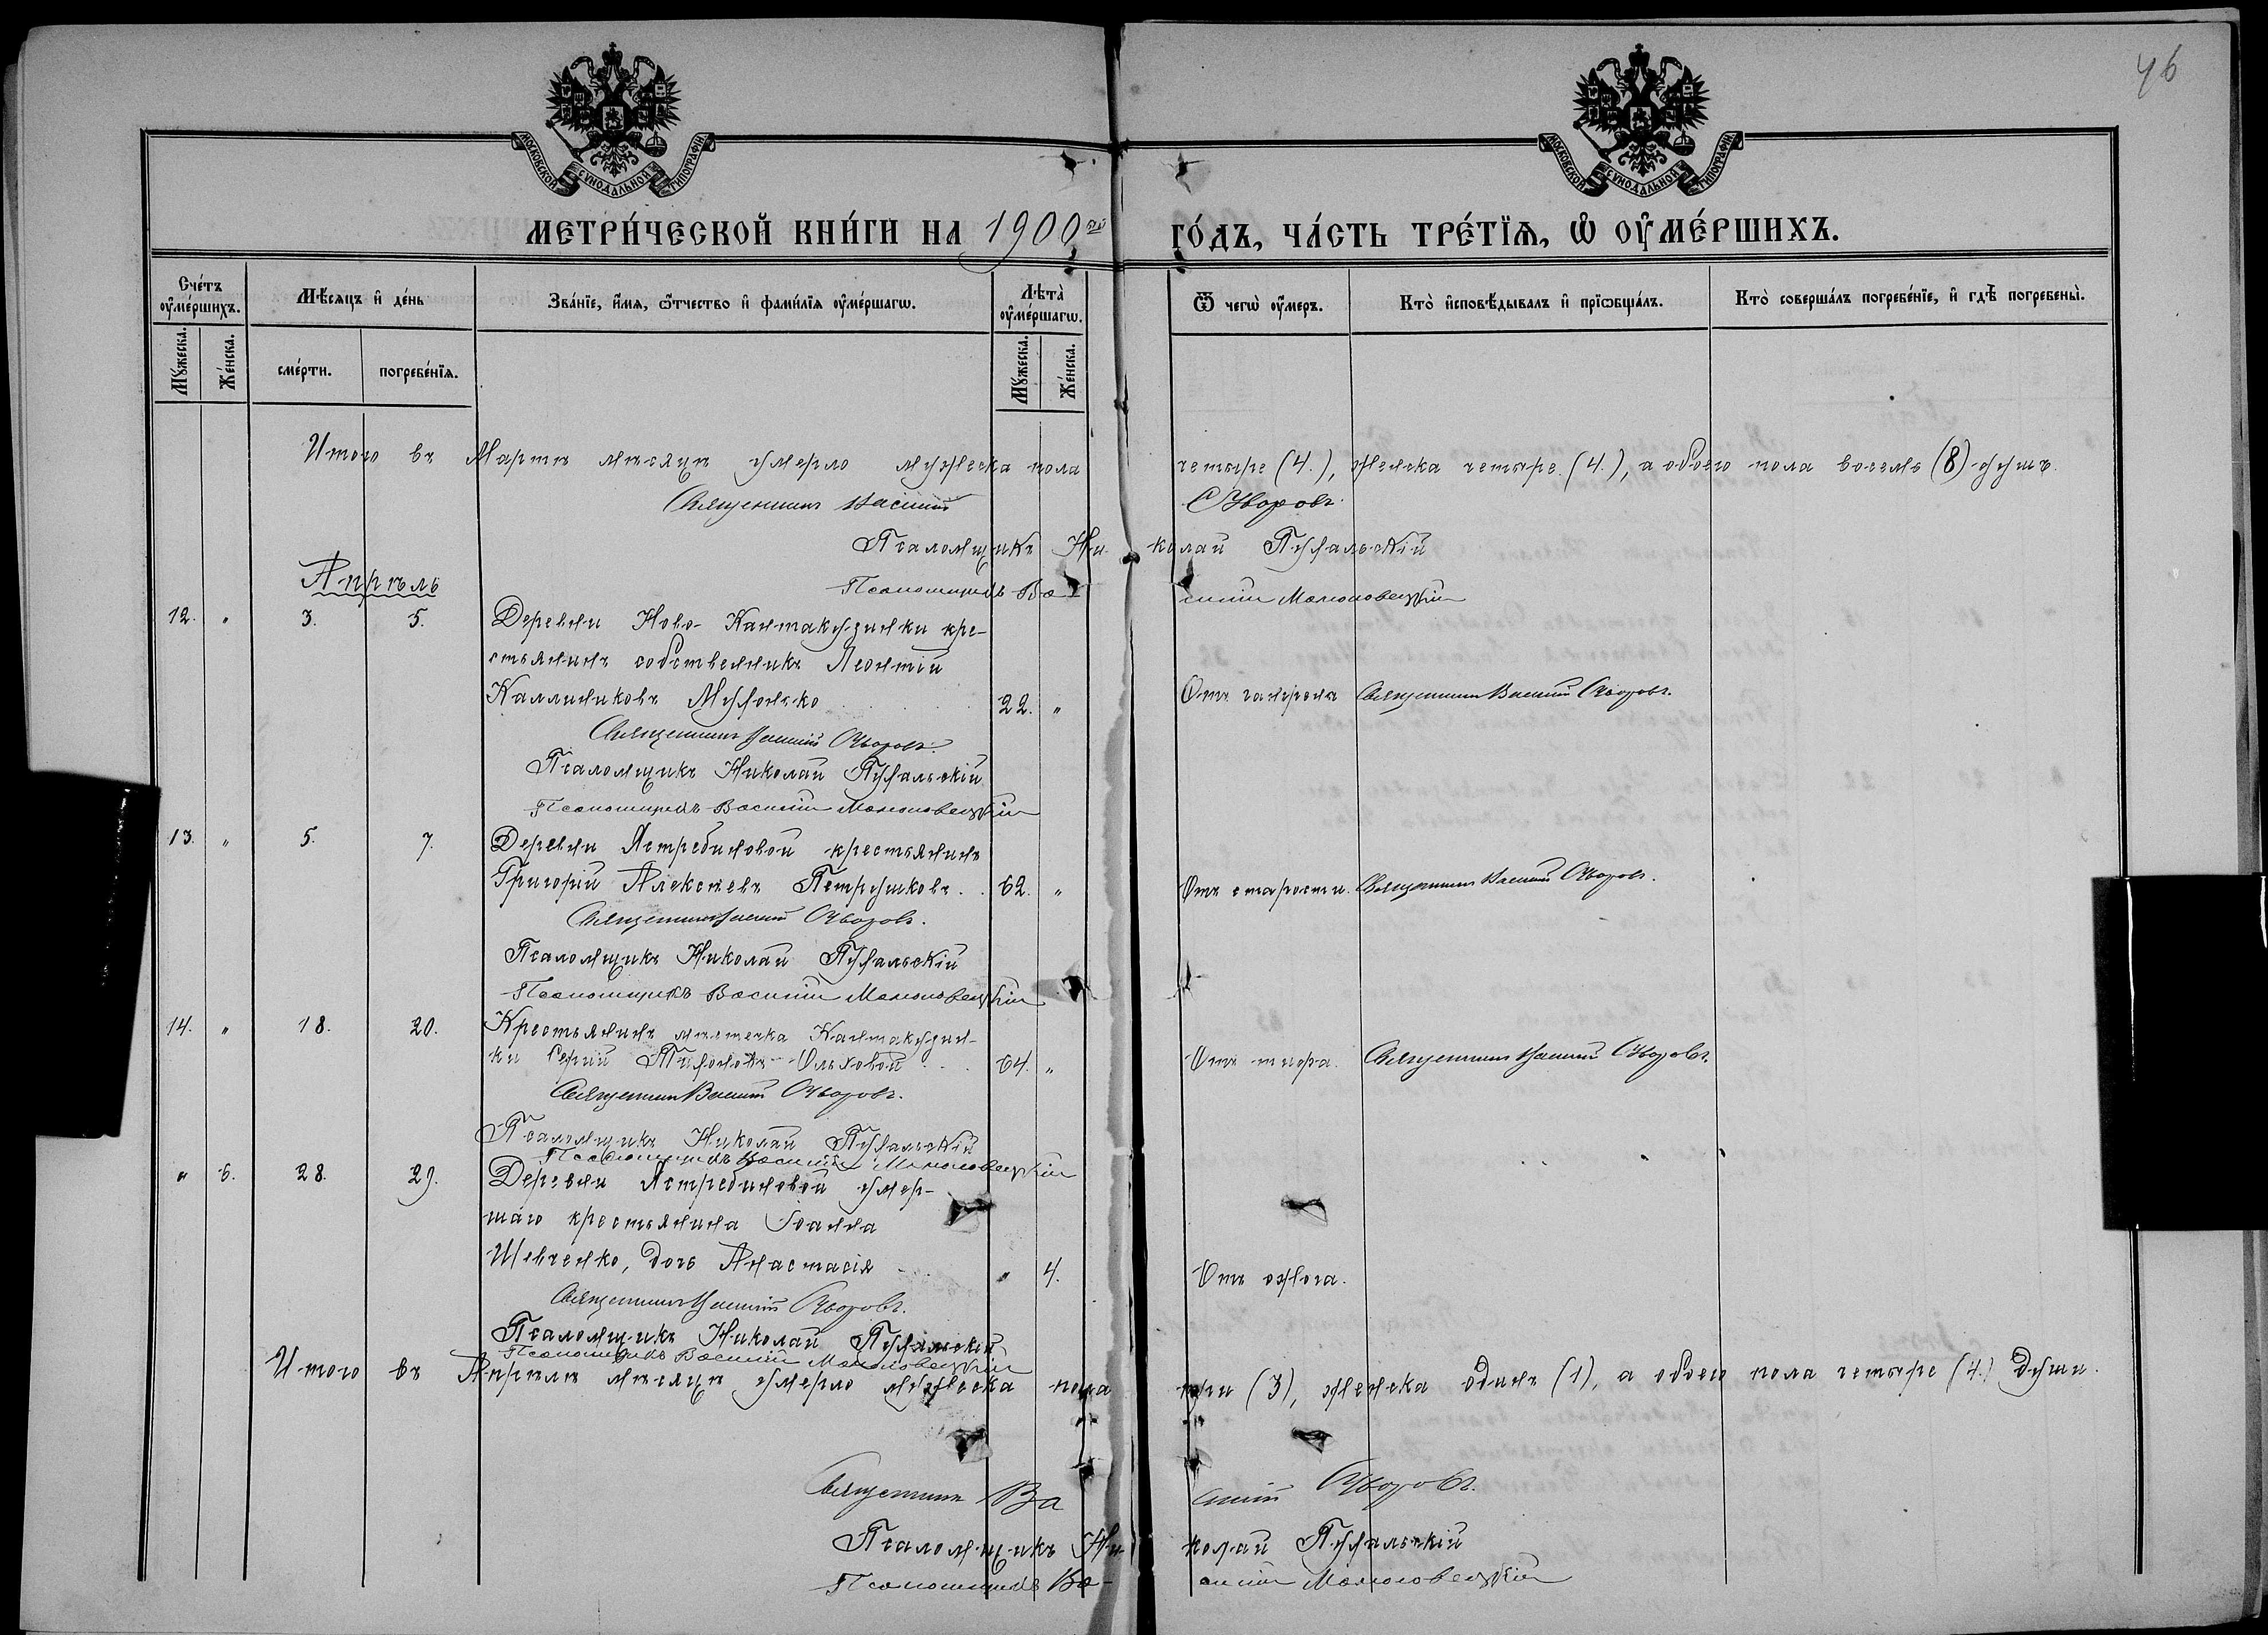 46
МОСКОВСКОЙ СѴНОДАЛЬНОЙ ТИПОГРАФІИ.
МОСКОВСКОЙ СѴНОДАЛЬНОЙ ТИПОГРАФІИ.
МЕТРИ́ЧЕСКОЙ КНИ́ГИ НА 1900ый ГО́ДЪ, ЧА́СТЬ ТРЕ́ТЇѦ, Ѡ҆ ОУ҆МЕ́РШИХЪ.
Сче́тъ оу҆ме́ршихъ.
Мѣ́сѧцъ и҆ де́нь
Зва́нїе, и҆́мѧ, ѻ҆́тчество и҆ фами́лїѧ оу҆ме́ршагѡ.
Лѣ́та оу҆ме́ршагѡ.
Ѿ чегѡ̀ оу҆́меръ.
Кто̀ и҆сповѣ́дывалъ и҆ прїѡбща́лъ.
Кто̀ соверша́лъ погребе́нїе, и҆ гдѣ̀ погребены̀.
Мꙋ́жеска.
Же́нска.
сме́рти.
погребе́нїѧ.
Мꙋ́жеска.
Же́нска.
Итого въ Мартѣ мѣсяцѣ умерло мужеска пола четыре (4.), женска четыре (4.), а обоего пола восемь (8) душъ.
Священникъ Василій Суворовъ.
Псаломщикъ Николай Пухальскій
Псаломщикъ Василій
Апрѣль
12. " 3. 5. Деревни Ново-Кантакузинки кре-
стьянинъ собственникъ Леонтій
Каллиниковъ 22. " Отъ Священникъ Василій Суворовъ.
Священникъ Василій Суворовъ.
Псаломщикъ Николай Пухальскій
Псаломщикъ Василій
13. " 5. 7. Деревни Ястребиновой крестьянинъ
Григорій Алексѣевъ Петрушковъ 62. " Отъ старости. Священникъ Василій Суворовъ.
Священникъ Василій Суворовъ.
Псаломщикъ Николай Пухальскій
Псаломщикъ Василій
14. " 18. 20. Крестьянинъ мѣстечка Кантакузин-
ки 64. " Отъ Священникъ Василій Суворовъ.
Священникъ Василій Суворовъ.
Псаломщикъ Николай Пухальскій
Псаломщикъ Василій
" 6. 28. 29. Деревни Ястребиновой умер-
шаго крестьянина Іоанна
Шевченко, дочь Анастасія " 4. Отъ ожога.
Священникъ Василій Суворовъ.
Псаломщикъ Николай Пухальскій
Псаломщикъ Василій
Итого въ Апрѣлѣ мѣсяцѣ умерло мужеска пола три (3), женска одинъ (1), а обоего пола четыре (4.) души.
Священникъ Василій Суворовъ.
Псаломщикъ Николай Пухальскій
Псаломщикъ Василій